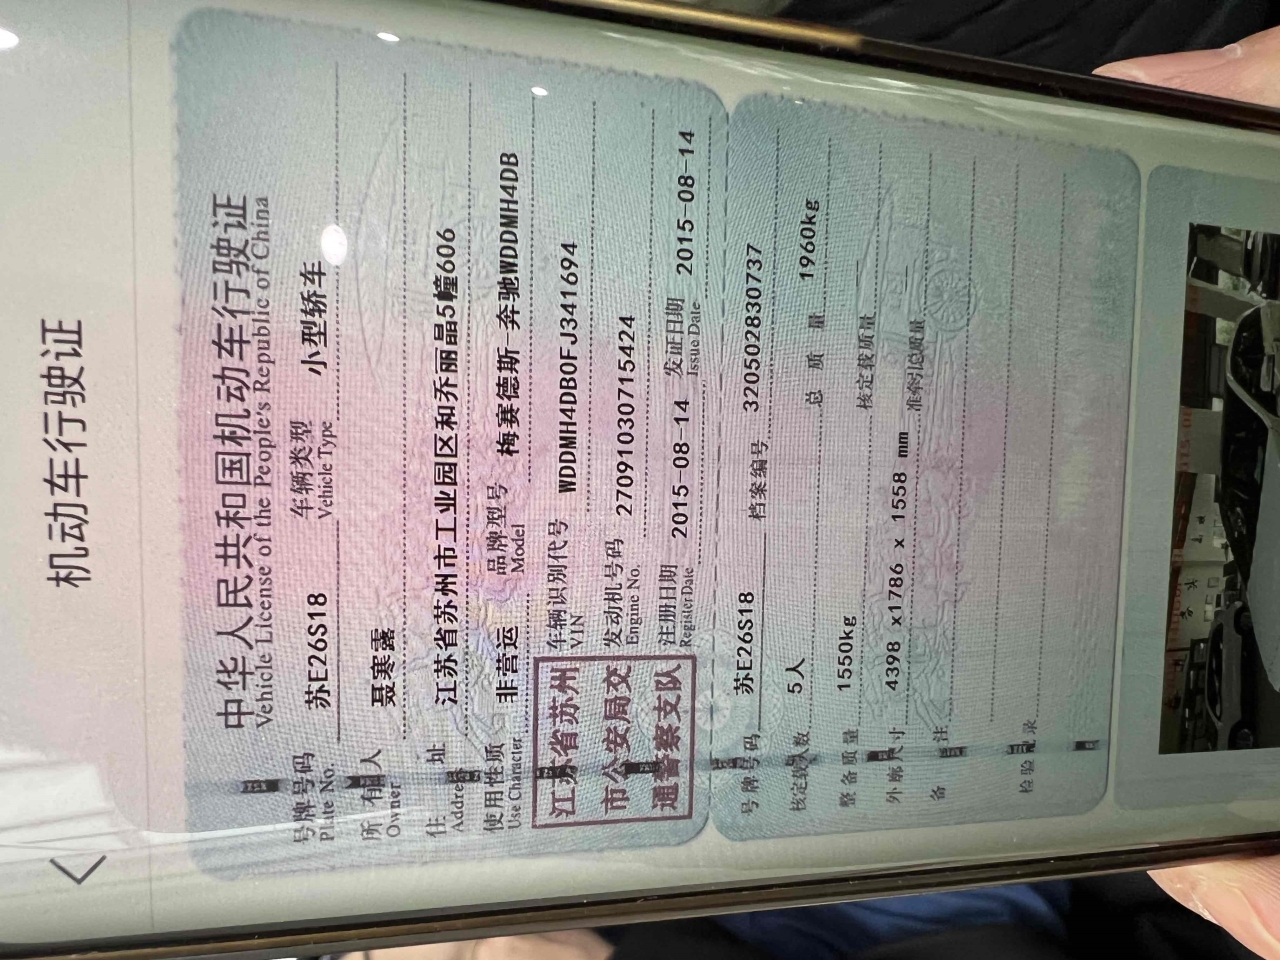 机动车行驶证
中华人民共和国机动车行驶证
Vehicle License of the People's Republic of China
号牌号码 苏E26S18 车辆类型 小型轿车
Plate No. Vehicle Type
所有人 聂寒露
Owner
住址 江苏省苏州市工业园区和乔丽晶5幢606
Address
使用性质 非营运 品牌型号 梅赛德斯-奔驰WDDMH4DB
Use Character Model
江苏省苏州
市公安局交
通警察支队
车辆识别代号 WDDMH4DB0FJ341694
VIN
发动机号码 27091030715424
Engine No.
注册日期 2015-08-14 发证日期 2015-08-14
Register Date Issue Date
号牌号码 苏E26S18 档案编号 320502830737
核定载人数 5人 总质量 1960kg
整备质量 1550kg 核定载质量
外廓尺寸 4398 x1786 x 1558 mm 准牵引总质量 ——
备注
检验记录